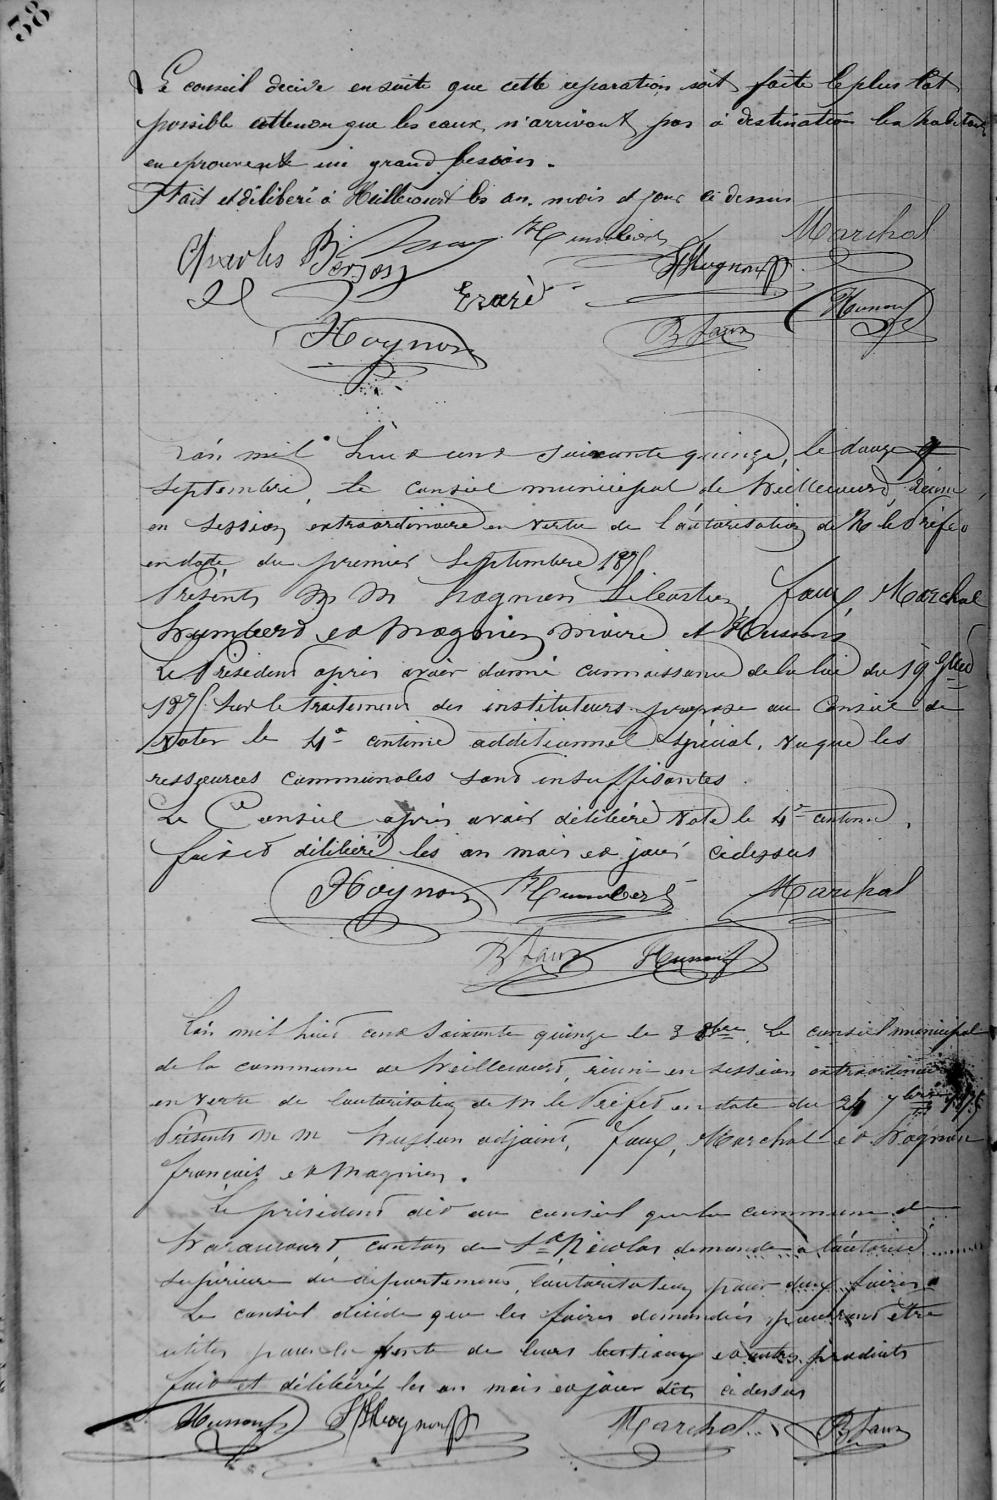 38
Le conseil decide en suite que cette reparation soit faite le plus tot
possible attendu que les eaux n'arrivant pas à destination les habitants
en eprouvent un grand besoin.
Fait et délibéré à Heillecourt les an, mois et jour ci dessus
Charles Marchal
Humbert
Erard
Hoynon B faux
L'an mil huit cent soixante quinze, le douze
Septembre, le conseil municipal de heillecourt, réuni,
en session extraordinaire en vertu de l'autorisation de M le Préfet
en date du premier Septembre 1875
Présents M M hognon Sébastien, faux, Marchal
humbert, et Magnien maire et Husson
Le Président après avoir donné connaissance de la loi du 19
1875 sur le traitement des instituteurs propose au Conseil de
voter le 4e centime additionnel spécial, vu que les
ressources communales sont insuffisantes.
Le Conseil après avoir délibéré vote le 4e centime.
fait et délibéré les an mois et jour ci dessus
Hoynon Humbert Marchal
B faux
L'an mil huit cent soixante quinze le 3 8bre Le conseil municipal
de la commune de heillecourt, réuni en session extraordinaire
en vertu de l'autorisation de M le Préfet en date du 24 7bre 1875
Présents M M husson adjoint, faux, Marchal et hognon
françois et Magnien.
Le président dit au conseil que la commune de
haraucourt, canton de St Nicolas demande à l'autorité
supérieure du département, l'autorisation pour deux foires
Le conseil décide que les foires demandées pourront être
utiles pour la vente de leurs bestiaux et autres produits
fait et délibéré les an mois et jour dits ci dessus
Marchal B faux